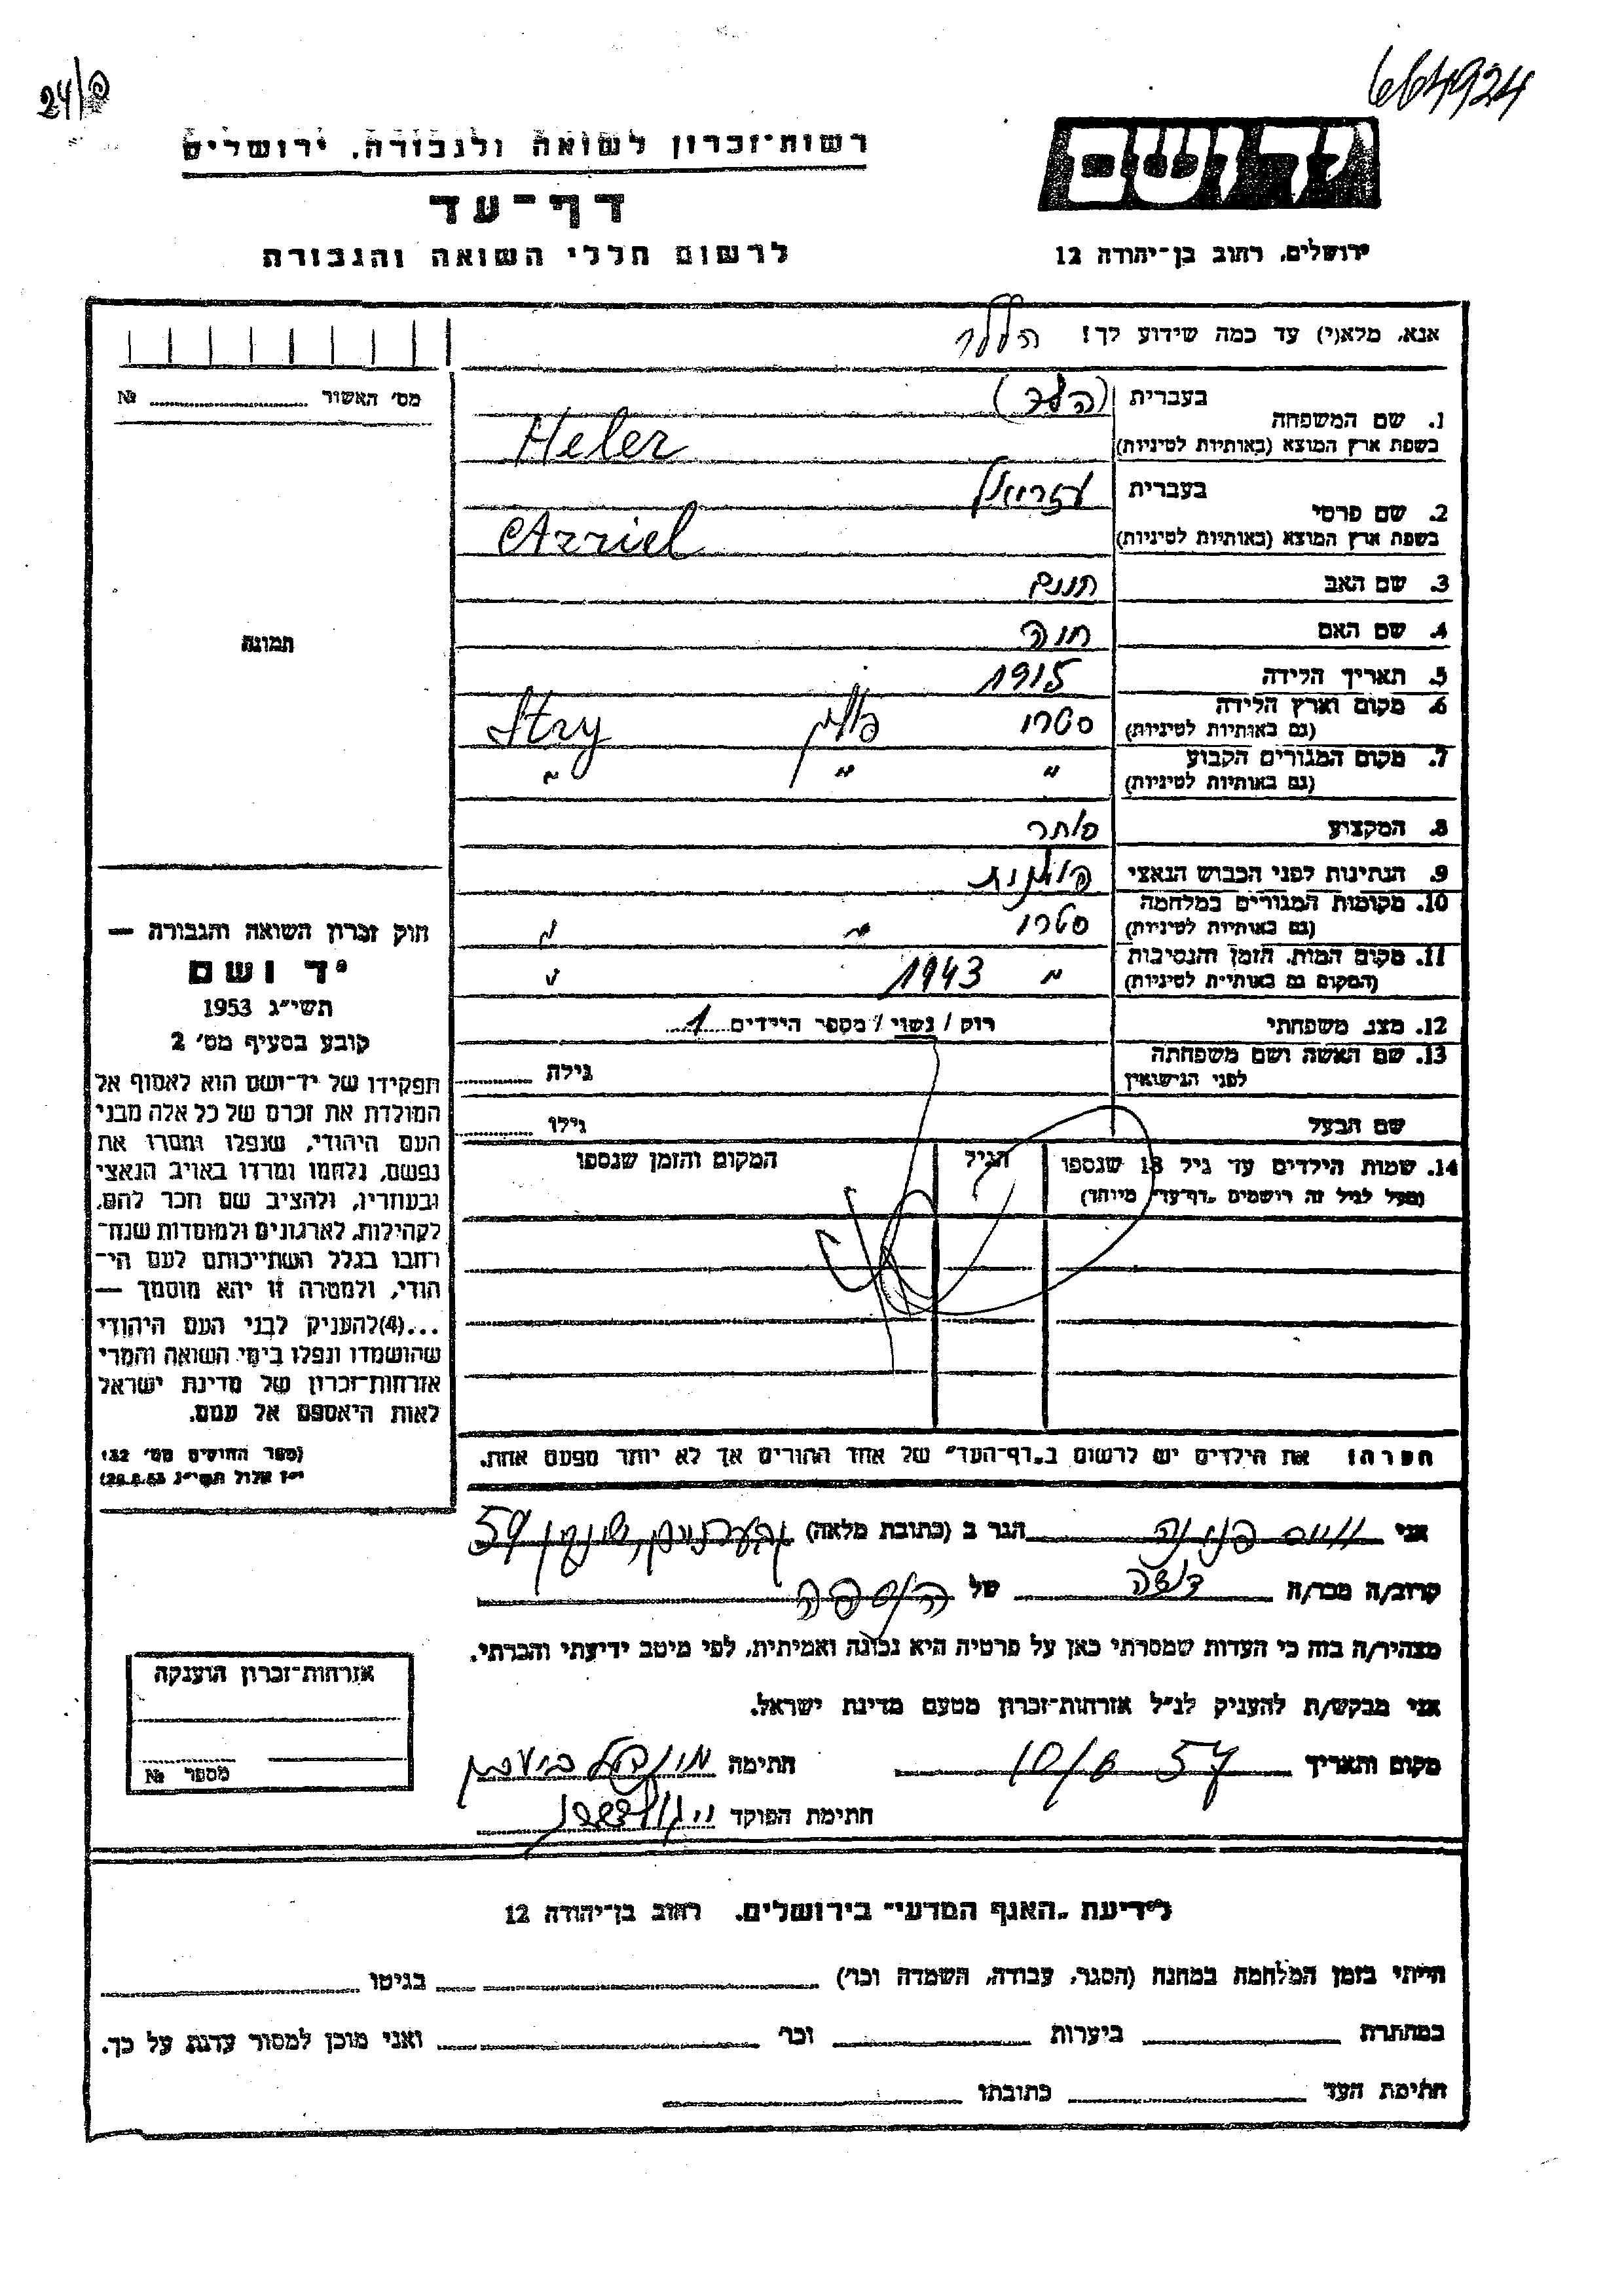 24/פ
664924
יד ושם
רשות־זכרון לשואה ולגבורה, ירושלים
דף־עד
לרשום חללי השואה והגבורה
ירושלים, רחוב בן־יהודה 12
אנא, מלא(י) עד כמה שידוע לך! הללר
מס׳ האשור №
1. שם המשפחה
בעברית (הלר)
בשפת ארץ המוצא (באותיות לטיניות) Heler
2. שם פרטי
בעברית עזריאל
בשפת ארץ המוצא (באותיות לטיניות) Azriel
3. שם האב
4. שם האם חנה
5. תאריך הלידה 1915
6. מקום וארץ הלידה (גם באותיות לטיניות) סטרי פולין Stry
7. מקום המגורים הקבוע (גם באותיות לטיניות) " " "
8. המקצוע סוחר
9. הנתינות לפני הכבוש הנאצי פולנית
10. מקומות המגורים במלחמה (גם באותיות לטיניות) סטרי " "
11. מקום המות, הזמן והנסיבות (המקום גם באותיות לטיניות) " 1943 "
12. מצב משפחתי רוק / נשוי / מספר הילדים 1
13. שם האשה ושם משפחתה לפני הנישואין גילה
שם הבעל גילו
14. שמות הילדים עד גיל 18 שנספו הגיל המקום והזמן שנספו
(מעל לגיל זה רושמים „דף־עד" מיוחד)
הערה: את הילדים יש לרשום ב„דף־העד" של אחד ההורים אך לא יותר מפעם אחת.
תמונה
חוק זכרון השואה והגבורה —
יד ושם
תשי״ג 1953
קובע בסעיף מס׳ 2
תפקידו של יד־ושם הוא לאסוף אל
המולדת את זכרם של כל אלה מבני
העם היהודי, שנפלו ומסרו את
נפשם, נלחמו ומרדו באויב הנאצי
ובעוזריו, ולהציב שם וזכר להם,
לקהילות, לארגונים ולמוסדות שנח־
רבו בגלל השתייכותם לעם הי־
הודי, ולמטרה זו יהא מוסמך —
...(4) להעניק לבני העם היהודי
שהושמדו ונפלו בימי השואה והמרי
אזרחות־זכרון של מדינת ישראל
לאות היאספם אל עמם.
(ספר החוקים מס׳ 132
י״ז אלול תשי״ג 28.8.53)
אני הגר ב (כתובת מלאה) 59
קרוב/ה מכר/ה דודה של
מצהיר/ה בזה כי העדות שמסרתי כאן על פרטיה היא נכונה ואמיתית, לפי מיטב ידיעתי והכרתי.
אני מבקש/ת להעניק לנ״ל אזרחות־זכרון מטעם מדינת ישראל.
מקום ותאריך 57 10/8 חתימה
חתימת הפוקד
אזרחות־זכרון הוענקה
מספר №
לידיעת „האגף המדעי" בירושלים, רחוב בן־יהודה 12
הייתי בזמן המלחמה במחנה (הסגר, עבודה, השמדה וכו׳) בגיטו
במחתרת ביערות וכו׳ ואני מוכן למסור עדות על כך.
חתימת העד כתובתו